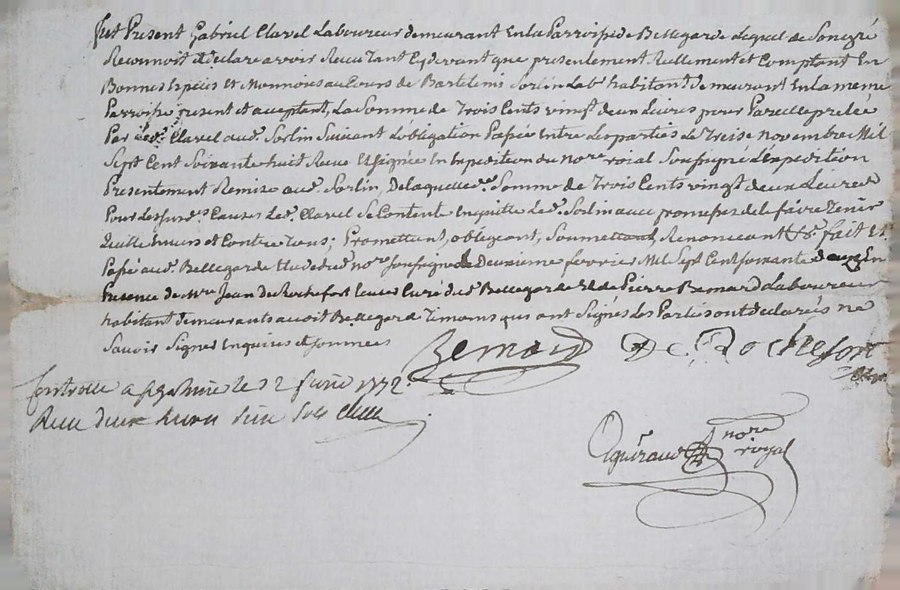 fut Present Gabriel Clavel Laboureur demeurant En la Parroisse de Bellegarde Lequel de Son gré
Reconnoit et declare avoir Recu Tant Cy devant que presentement Reellement et Comptant En
Bonnes Espèces et Monnoies au Cours de Bartelemi Sorlin Labr habitant demeurant En la meme
Parroisse present et acceptant, La Somme de Trois Cents vingt deux Livres pour Pareille pretée
Par led. Clavel aud. Sorlin Suivant L'obligation Passée Entre Les parties Le Treise novembre Mil
Sept Cent Soixante huit Reçue Et Signée En Expedition du nore roial Soussigné L'expedition
Presentement Remise aud. Sorlin, De laquelle de. Somme de Trois Cents vingt deux Livres
Pour Les susd. Causes Led. Clavel Se Contente En quitte Led. Sorlin avec promesse de le faire Tenir
Quitte Envers et Contre Tous; Promettant, obligeant, Soumettant, Renonceant &a. fait Et
Passé aud. Bellegarde Etude dud. nore soussigné Le Deuxieme fevrier Mil Sept Cent soixante douze En
Presence de Mre Jean De Rochefort Curé dud. Bellegarde Et de Pierre Bernard Laboureur
habitant demeurants aud. Bellegarde Temoins qui ont Signés Les Parties ont declarés ne
Savoir Signer Enquises et sommées
Bernard De Rochefort
Controllé a le 12 fevrié 1772
Recu deux livres sols
Aguiraud nore
royal